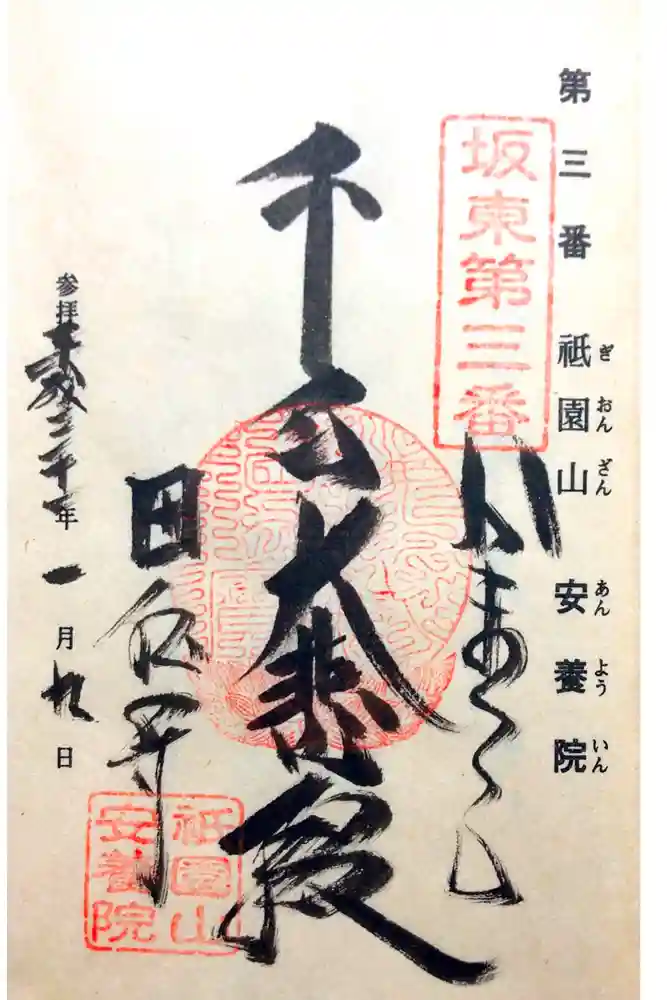 第三番 祇園山 安養院
ぎおんざん あんよういん
坂東第三番
かまくら
千手大悲殿
田代寺
参拝 平成三十一年 一月九日
祇園山
安養院